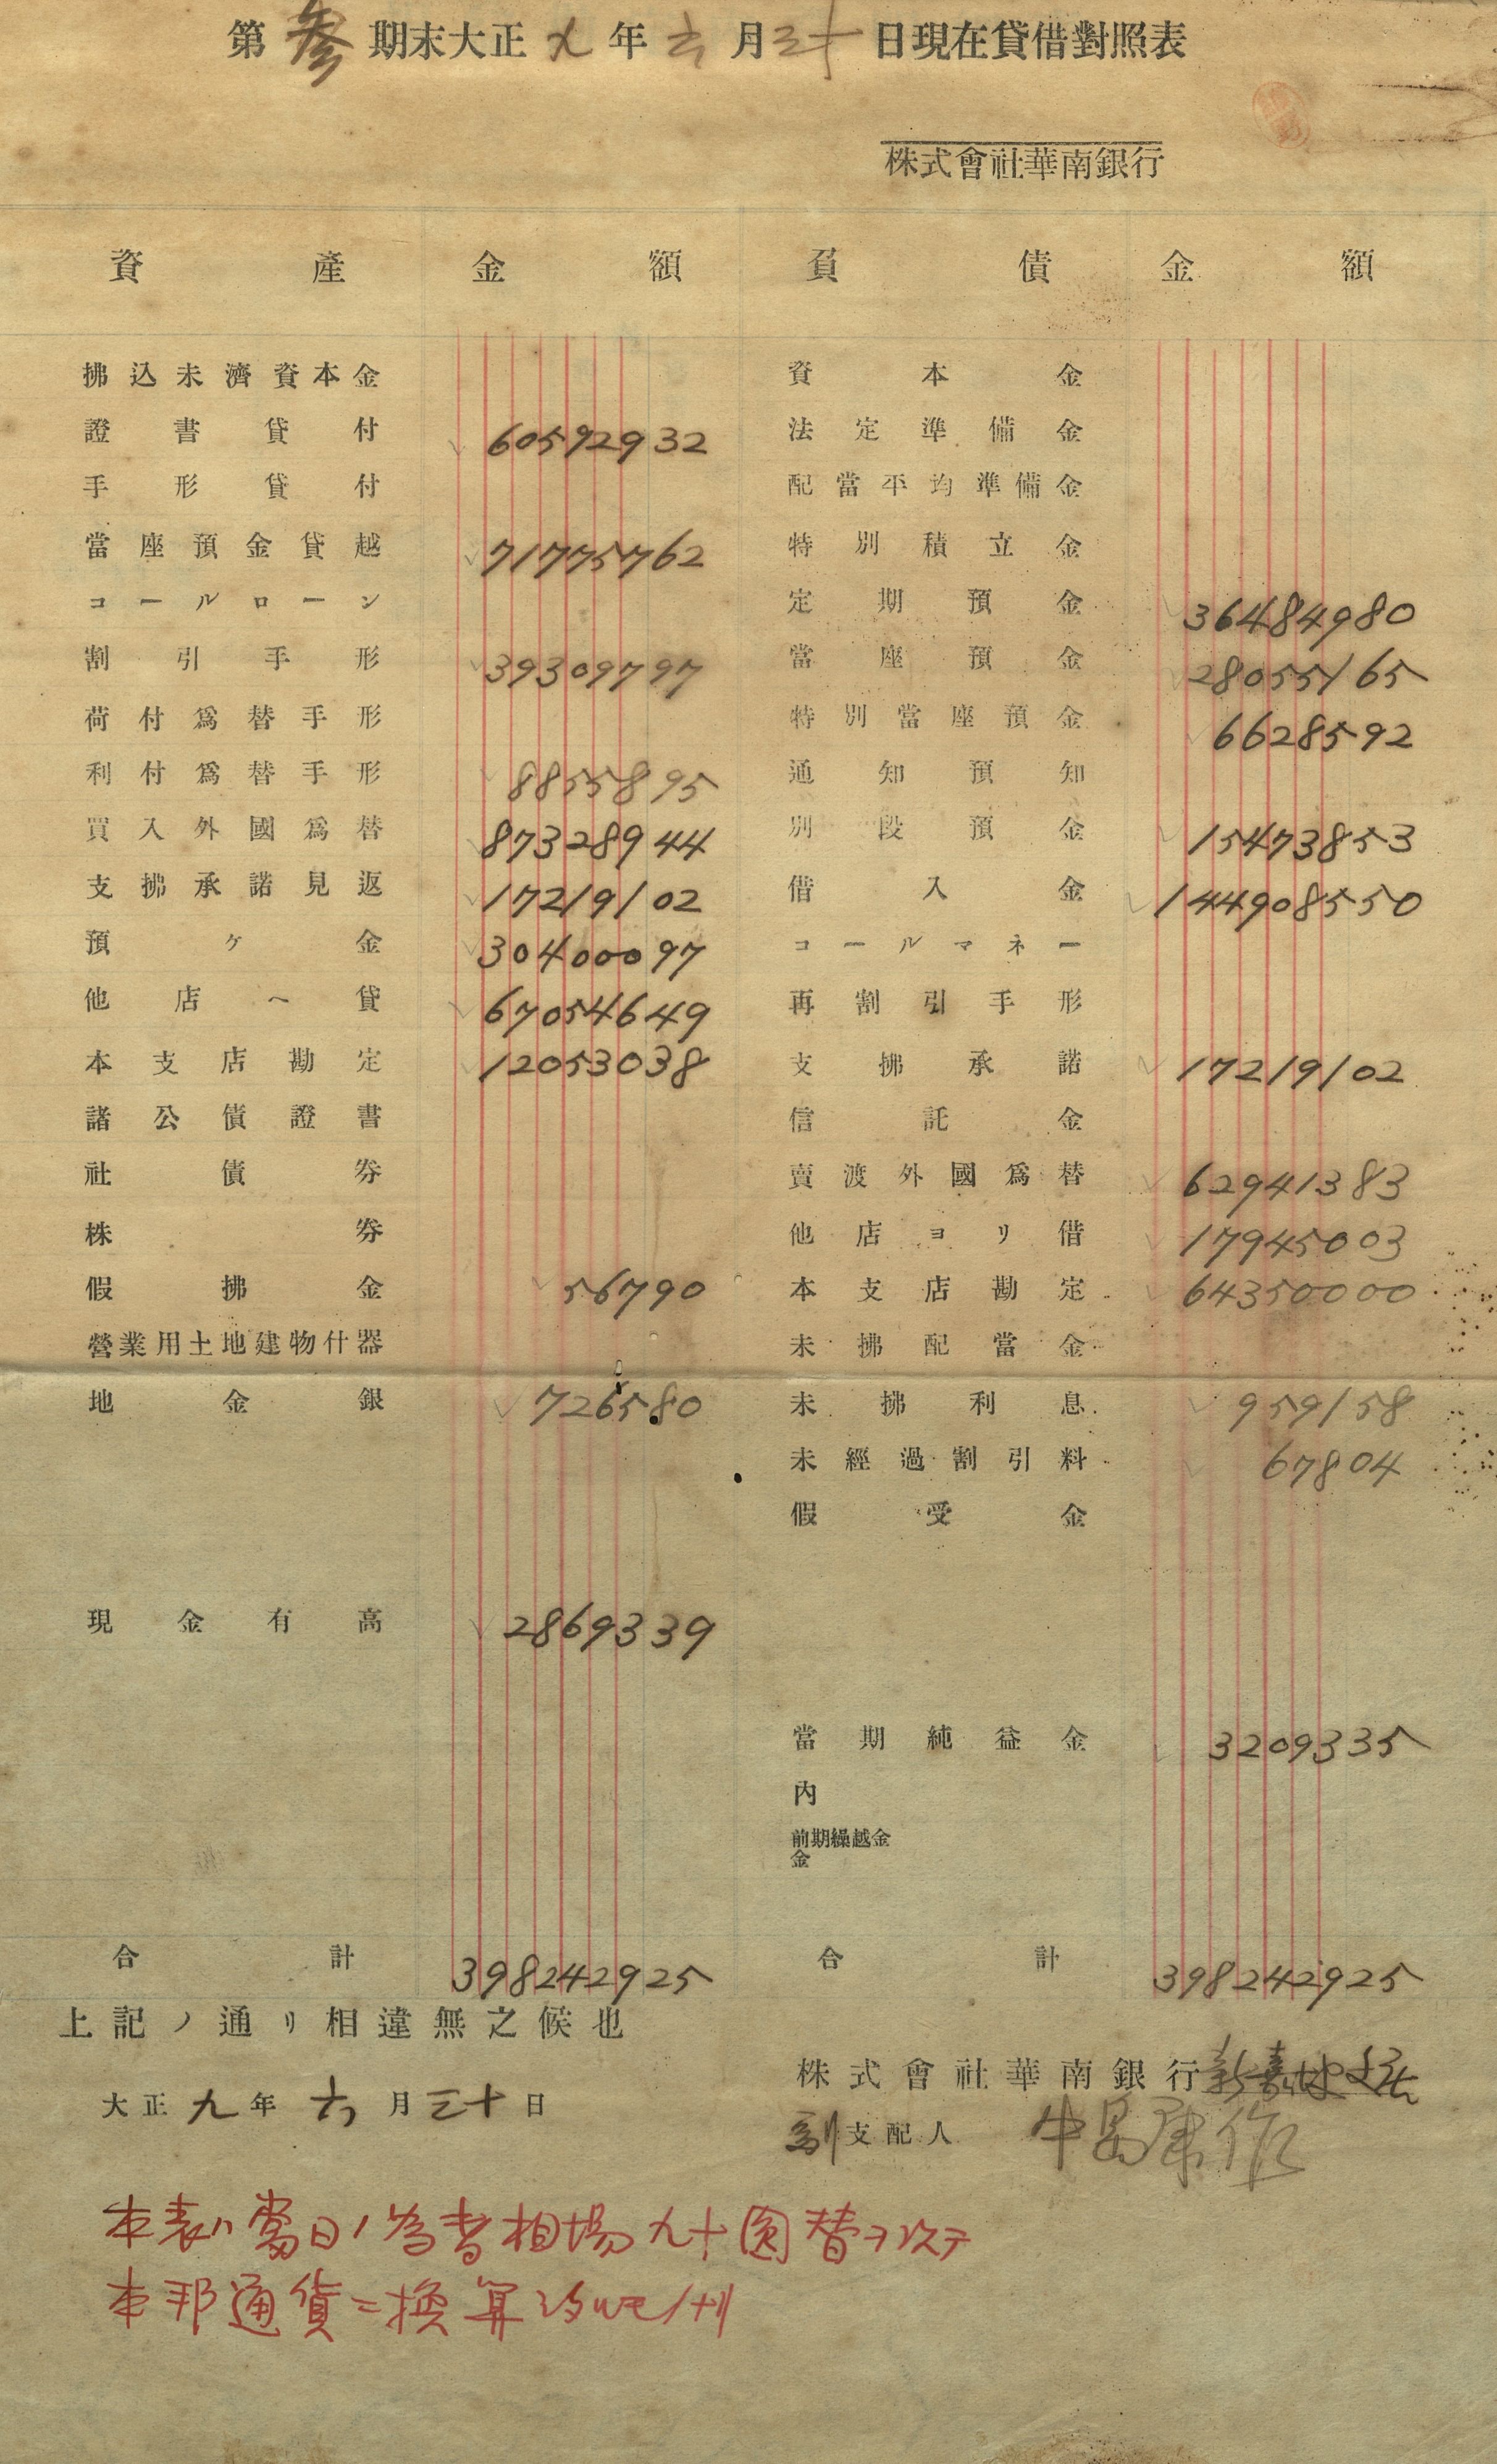 第參期末大正九年六月三十日現在貸借對照表
株式會社華南銀行
資產 金額 負債 金額
拂込未濟資本金
證書貸付 60592932
手形貸付
當座預金貸越 71775762
コールローン
割引手形 39309797
荷付爲替手形
利付爲替手形 8855895
買入外國爲替 87328944
支拂承諾見返 17219102
預ケ金 30400097
他店へ貸 67054649
本支店勘定 12053038
諸公債證書
社債券
株券
假拂金 56790
營業用土地建物什器
地金銀 726580
現金有高 2869339
合計 398242925
資本金
法定準備金
配當平均準備金
特別積立金
定期預金 36484980
當座預金 28055165
特別當座預金 6628592
通知預知
別段預金 15473853
借入金 144908550
コールマネー
再割引手形
支拂承諾 17219102
信託金
賣渡外國爲替 62941383
他店ヨリ借 17945003
本支店勘定 64350000
未拂配當金
未拂利息 959158
未經過割引料 67804
假受金
當期純益金 3209335
內
前期繰越金
金
合計 398242925
上記ノ通リ相違無之候也
大正九年六月三十日
株式會社華南銀行新嘉坡支店
副支配人
本表ハ當日ノ為替相場九十圓替ヲ以テ
本邦通貨ニ換算